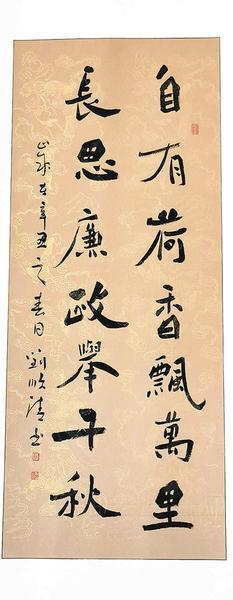 自有荷香飄萬里
長思廉政舉千秋
歲在辛丑之春月劉順清書